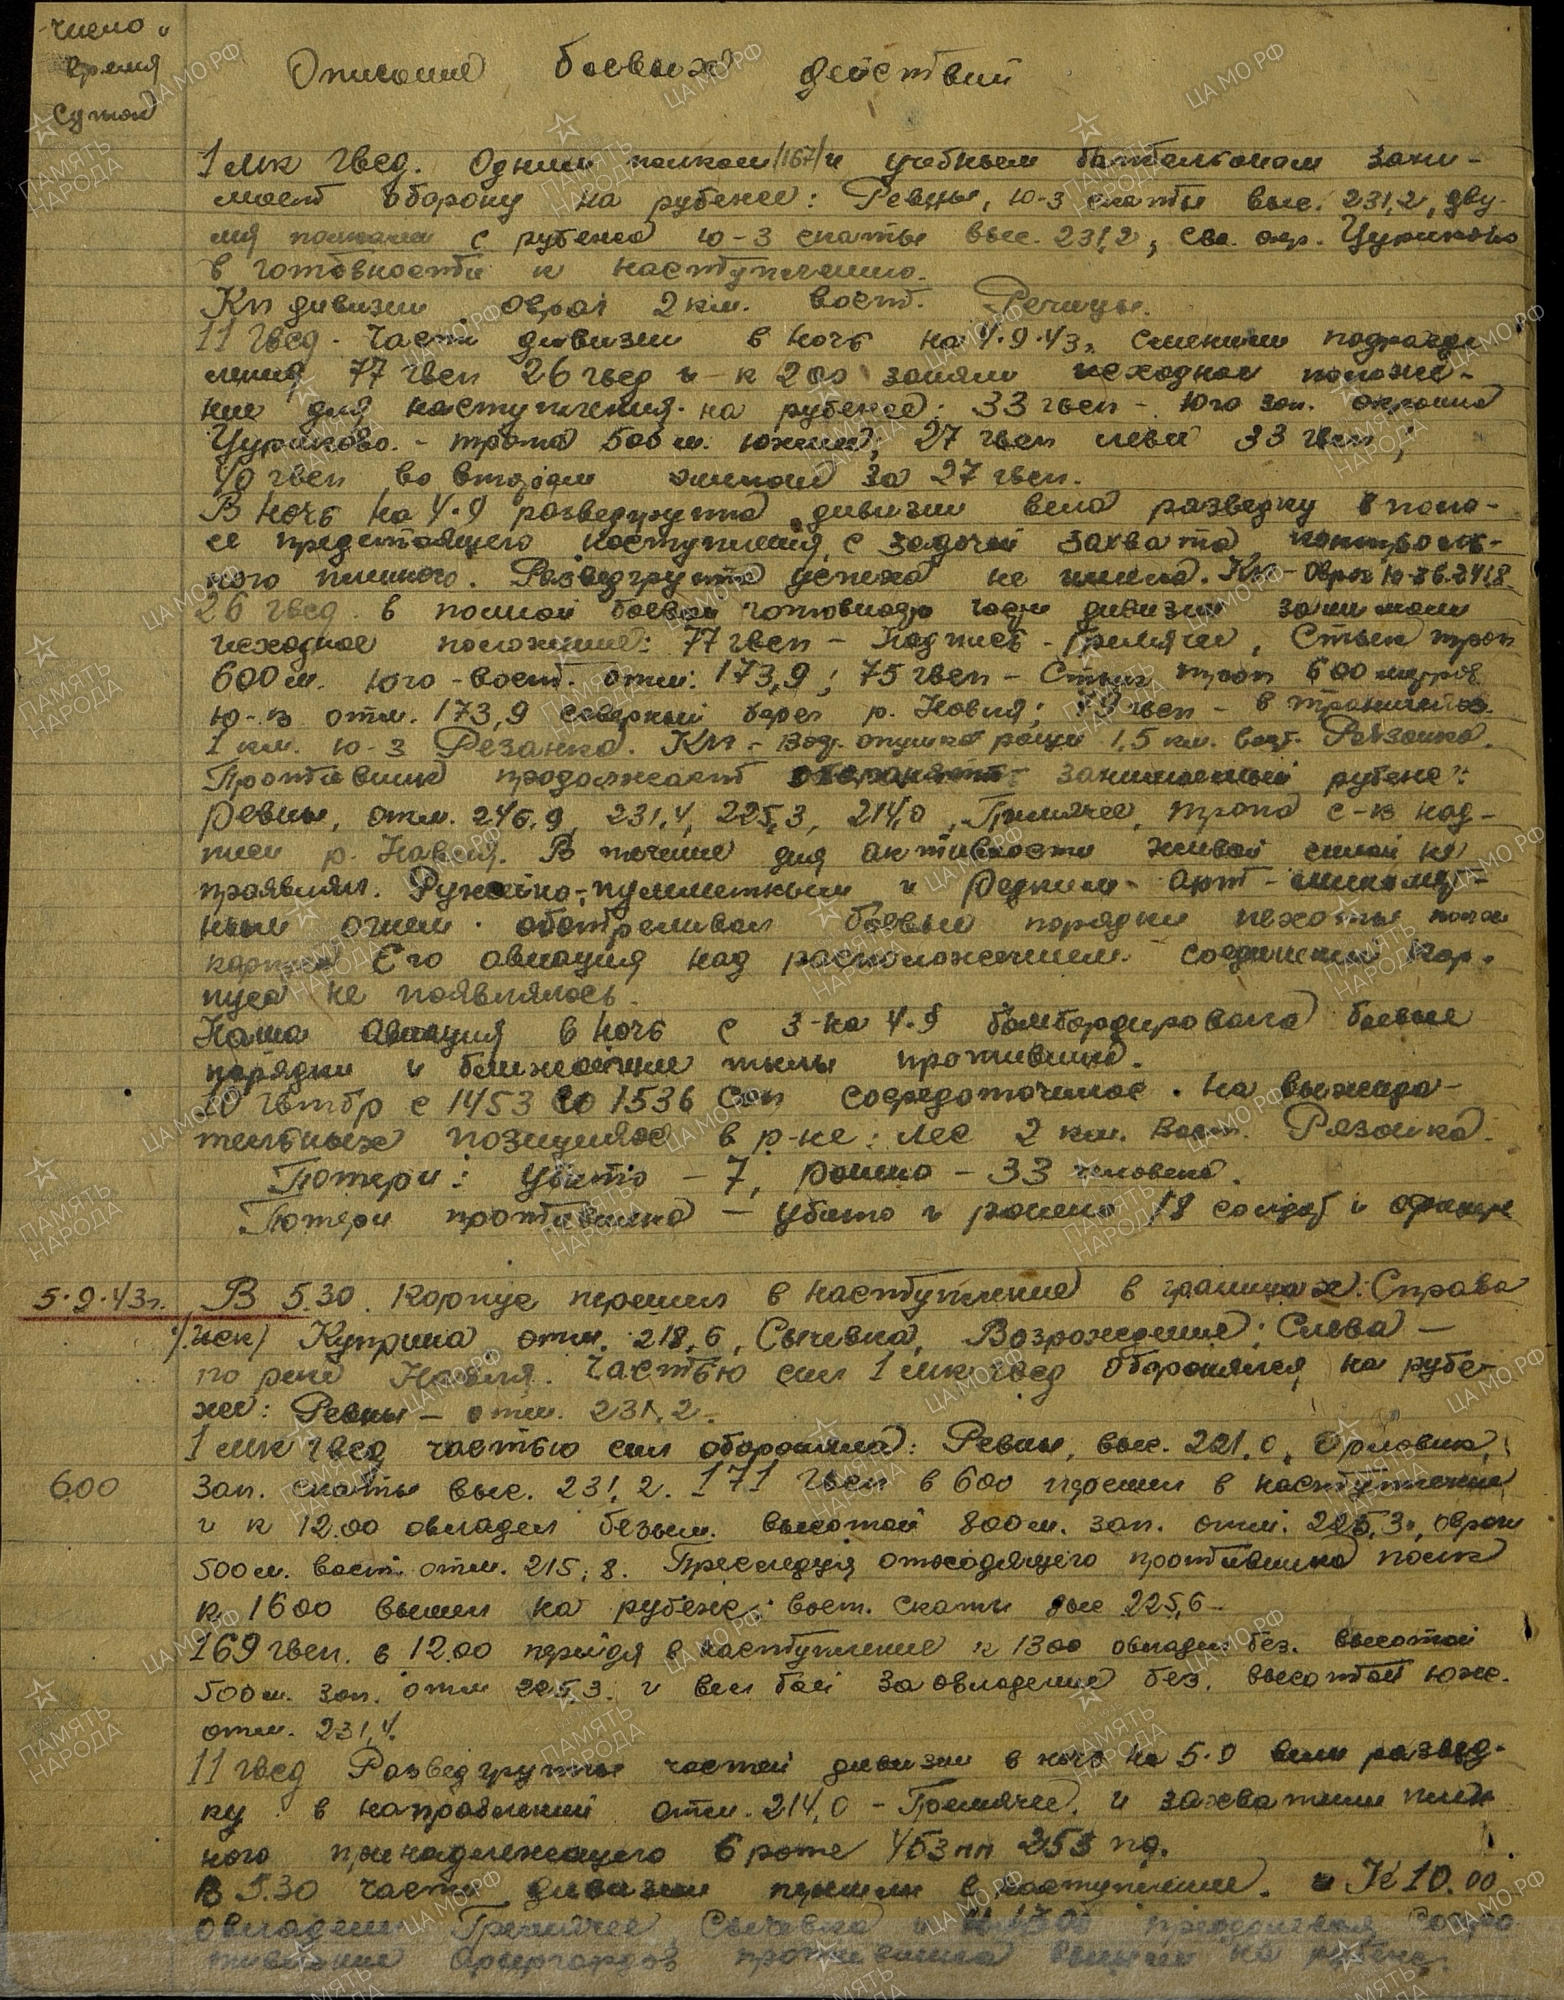 Число и
время
суток
Описание боевых действий
1 мк гвсд. Одним полком /167/ и учебным батальоном зани-
мает оборону на рубеже: Ревны, ю-з скаты выс. 231,2, дву-
мя полками с рубежа ю-з скаты выс. 231,2, окр. Цуриково
в готовности к наступлению.
Кп дивизии овраг 2 км. вост. Речицы.
11 гвсд. Части дивизии в ночь на 4.9.43г. сменили подразде
ления 77 гвсп 26 гвсд и к 200 заняли исходное положе-
ние для наступления на рубеже: 33 гвсп – юго зап. окраина
Цуриково. – тропа 500 м. южнее; 27 гвсп левее 33 гвсп;
40 гвсп во втором эшелоне за 27 гвсп.
В ночь на 4.9 разведгруппа дивизии вела разведку в поло-
се предстоящего наступления, с задачей захвата контроль-
ного пленного. Разведгруппа успеха не имела. Кп – овраг ю-в в. 241,8
26 гвсд. в полной боевой готовности части дивизии занимали
исходное положение: 77 гвсп – Надпись – Гремячее, Стык троп
600 м. юго-вост. отм. 173,9; 75 гвсп – Стык троп 600 метров
ю-в отм. 173,9 северный берег р. Навля; 79 гвсп – в траншеях
1 км. ю-з Рязанка. Кп – опушка рощи 1,5 км. вост. Рязанка.
Противник продолжает оборонять занимаемый рубеж:
Ревны, отм. 246,9, 231,4, 225,3, 214,0, Гремячее, тропа с-в над-
писи р. Навля. В течение дня активности живой силой не
проявлял. Ружейно-пулеметным и редким арт-миномет-
ным огнем обстреливал боевые порядки пехоты
корпуса Его авиация над расположением соединений кор-
пуса не появлялась.
Наша авиация в ночь с 3 на 4.9 бомбардировала боевые
порядки и ближайшие тылы противника.
10 гвтбр с 1453 1536 сап сосредоточилась на выжида-
тельных позициях в р-не: лес 2 км. Вост. Рязанка.
Потери: убито – 7, ранено – 33 человека.
Потери противника – убито и ранено 18 солдат и офицер
5.9.43г. В 5.30 корпус перешел в наступление в границах: Справа
/иск/ Куприна отм. 218,6, Сычевка, Возрождение; Слева –
по реке Навля. Частью сил 1 мк гвсд оборонялся на рубе-
же: Ревны – отм. 231,2.
1 мк гвсд частью сил обороняла: Ревны, выс. 221,0, Орловик,
600 зап. скаты выс. 231,2. 171 гвсп в 600 перешел в наступление
и к 12.00 овладел безым. высотой 800 м. зап. отм. 225,3, овраг
500 м. вост. отм. 215,8. Преследуя отходящего противника полк
к 1600 вышел на рубеж: вост. скаты выс 225,6
169 гвсп. в 12.00 перейдя в наступление к 1300 овладел без. высотой
500 м. зап. отм 225,3. и вел бой за овладение без. высотой юж.
отм. 231,4.
11 гвсд Разведгруппы частей дивизии в ночь на 5.9 вели развед-
ку в направлении отм. 214,0 – Гремячее. и захватили плен
ного принадлежащего 6 роте 453 пп 253 пд.
В 5.30 части дивизии перешли в наступление. и к 10.00
овладели Гремячее, Сычевка и к 1300 преодолевая сопро
тивление арьергардов противника вышли на рубеж: